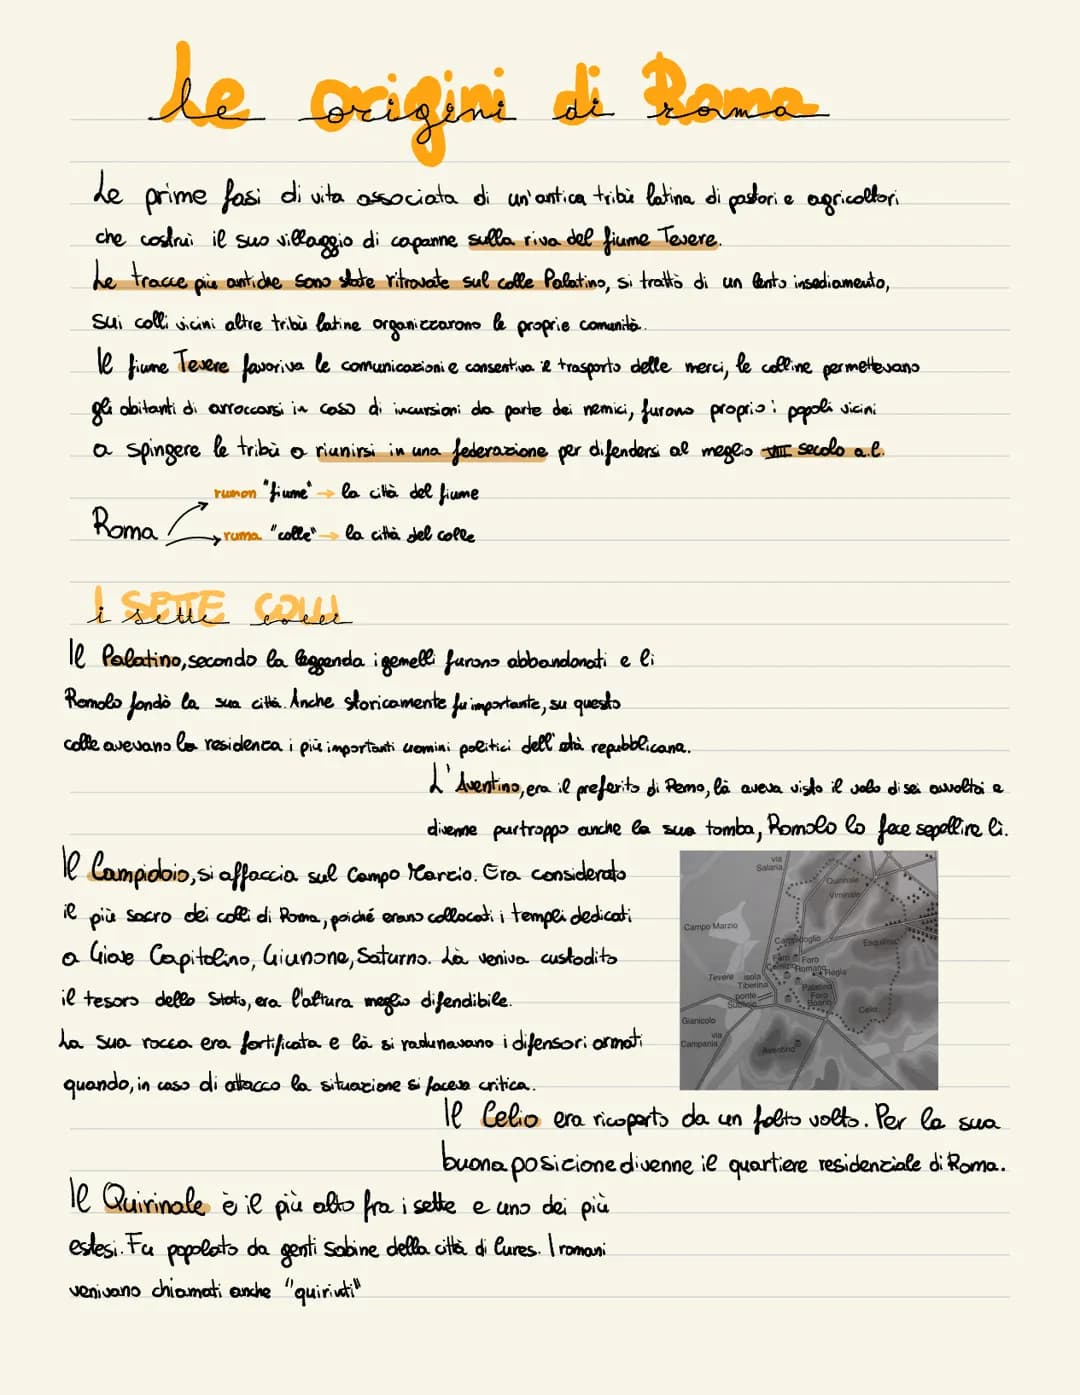 Le origini di Roma
Le prime fasi di vita associata di un'antica tribù latina di pastori e agricoltori
che costruì il suo villaggio di capanne sulla riva del fiume Tevere.
Le tracce più antiche sono state ritrovate sul colle Palatino, si trattò di un lento insediamento,
sui colli vicini altre tribù latine organizzarono le proprie comunità.
Il fiume Tevere favoriva le comunicazioni e consentiva il trasporto delle merci, le colline permettevano
gli abitanti di arroccarsi in caso di incursioni da parte dei nemici, furono proprio i popoli vicini
a spingere le tribù a riunirsi in una federazione per difendersi al meglio VIII secolo a.C.
rumon "fiume" → la città del fiume
Roma
ruma "colle" → la città del colle
i SETTE COLLI
i sette colli
Il Palatino, secondo la leggenda i gemelli furono abbandonati e lì
Romolo fondò la sua città. Anche storicamente fu importante, su questo
colle avevano la residenza i più importanti uomini politici dell'età repubblicana.
L'Aventino, era il preferito di Remo, là aveva visto il volo di sei avvoltoi e
divenne purtroppo anche la sua tomba, Romolo lo fece seppellire lì.
Il Campidoio, si affaccia sul Campo Marzio. Era considerato
il più sacro dei colli di Roma, poiché erano collocati i templi dedicati
a Giove Capitolino, Giunone, Saturno. Là veniva custodito
il tesoro dello Stato, era l'altura meglio difendibile.
La sua rocca era fortificata e là si radunavano i difensori armati
quando, in caso di attacco la situazione si faceva critica.
via
Salaria
Quirinale
Viminale
Campo Marzio
Campidoglio
Esquilino
Foro
Foro
Romano
Regia
Tevere
isola
Tiberina
Palatino
ponte
Sublicio
Foro
Boario
Celio
Gianicolo
via
Campania
Aventino
Il Celio era ricoperto da un folto volto. Per la sua
buona posizione divenne il quartiere residenziale di Roma.
Il Quirinale è il più alto fra i sette e uno dei più
estesi. Fu popolato da genti sabine della città di Cures. I romani
venivano chiamati anche "quiriti"